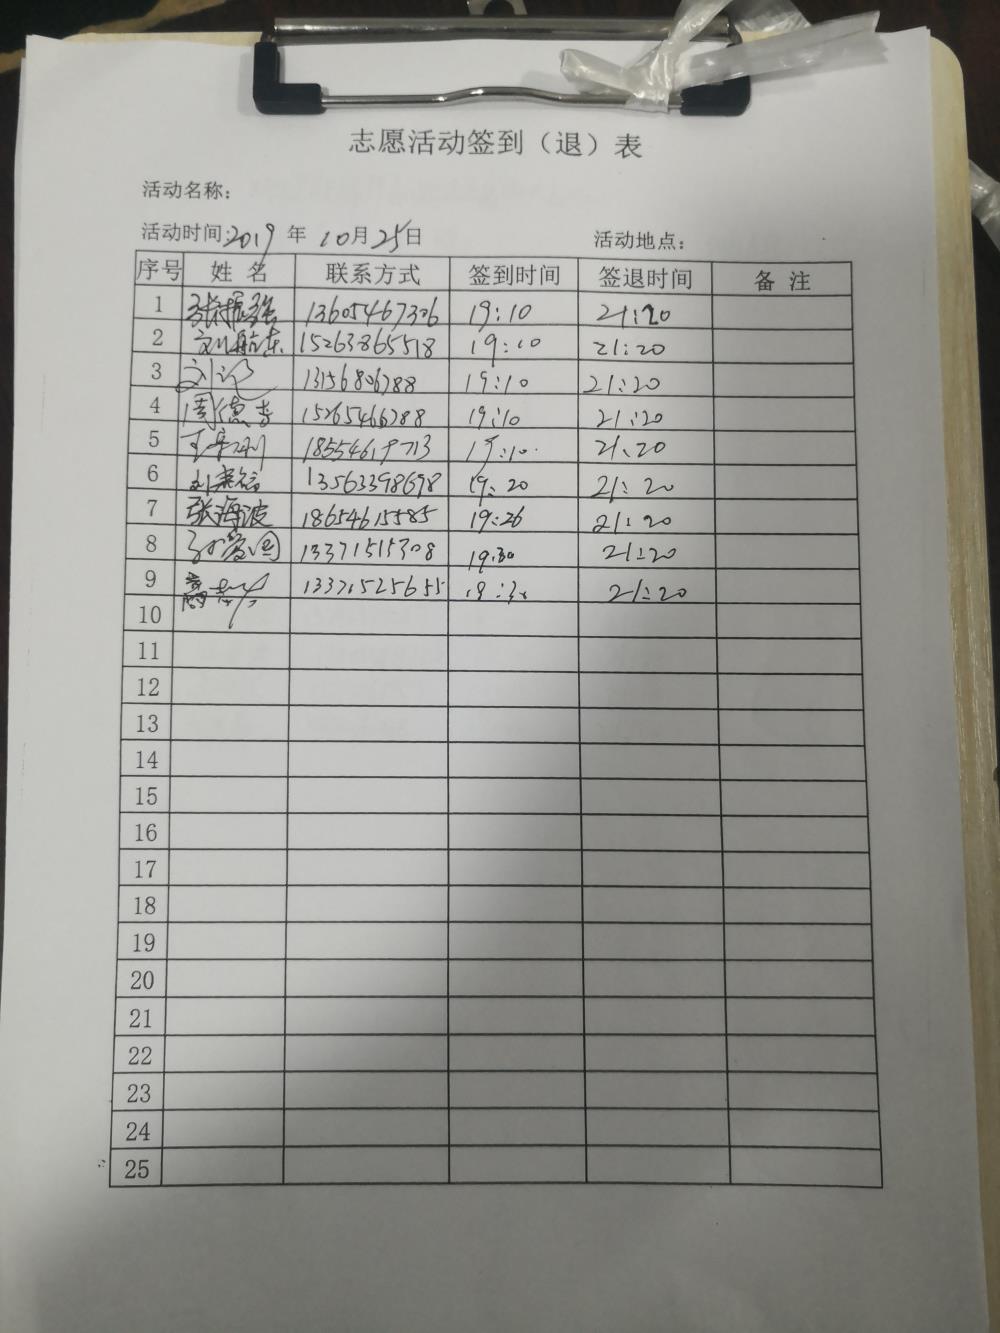 志愿活动签到（退）表
活动名称：
活动时间：2019 年 10月25日 活动地点：
序号 姓 名 联系方式 签到时间 签退时间 备 注
1 张振强 13605467306 19:10 21:20
2 刘航东 15263865518 19:10 21:20
3 刘 13156806788 19:10 21:20
4 周德 15265466288 19:10 21:20
5 王 19:10 21:20
6 刘 13563398698 19:20 21:20
7 张海波 18654615585 19:26 21:20
8 孙 国 13371515308 19:30 21:20
9 13371525655 21:20
10
11
12
13
14
15
16
17
18
19
20
21
22
23
24
25